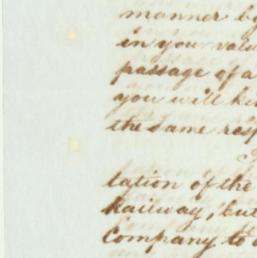 manner by
in your valu
passage of a
you will
the same res
tation of the
Railway, but
Company to